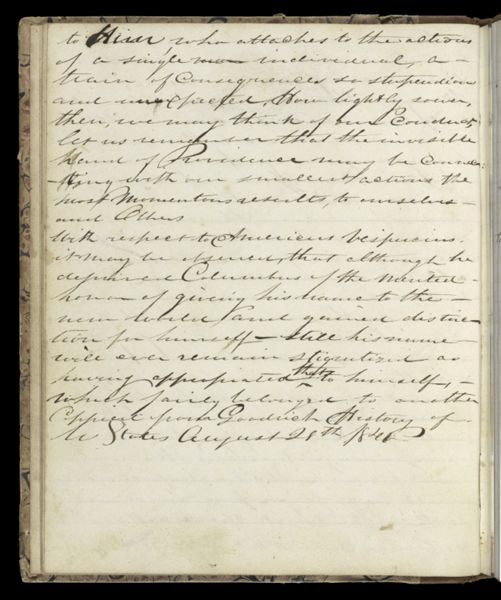 to Him, who attaches to the actions
of a single individual, a
train of Consequences so stupendious
and unexpected, How lightly soever,
then, we may think of our Conduct,
let us remember that the invisible
hand of Providence may be Connec
ting with our smallest actions the
most Momentous results, to ourselves
and Others
With respect to Americus Vespucius,
it may be observed, that although he
deprived Columbus of the merited
honor of giving his name to the
new World and gained distinc
tion for himself — Still his name
will ever remain stigmatized as
having appropriated that to himself, —
which fairly belonged to another
Copied from Goodrich History of
U States August 28th 184